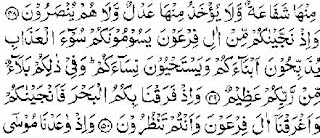 مِنْهَا شَفَاعَةٌ وَّلَا يُؤْخَذُ مِنْهَا عَدْلٌ وَّلَا هُمْ يُنْصَرُوْنَ ۝٤٨
وَاِذْ نَجَّيْنٰكُمْ مِّنْ اٰلِ فِرْعَوْنَ يَسُوْمُوْنَكُمْ سُوْٓءَ الْعَذَابِ
يُذَبِّحُوْنَ اَبْنَآءَكُمْ وَيَسْتَحْيُوْنَ نِسَآءَكُمْ ؕ وَفِيْ ذٰلِكُمْ بَلَآءٌ
مِّنْ رَّبِّكُمْ عَظِيْمٌ ۝٤٩ وَاِذْ فَرَقْنَا بِكُمُ الْبَحْرَ فَاَنْجَيْنٰكُمْ
وَاَغْرَقْنَآ اٰلَ فِرْعَوْنَ وَاَنْتُمْ تَنْظُرُوْنَ ۝٥٠ وَاِذْ وٰعَدْنَا مُوْسٰٓى